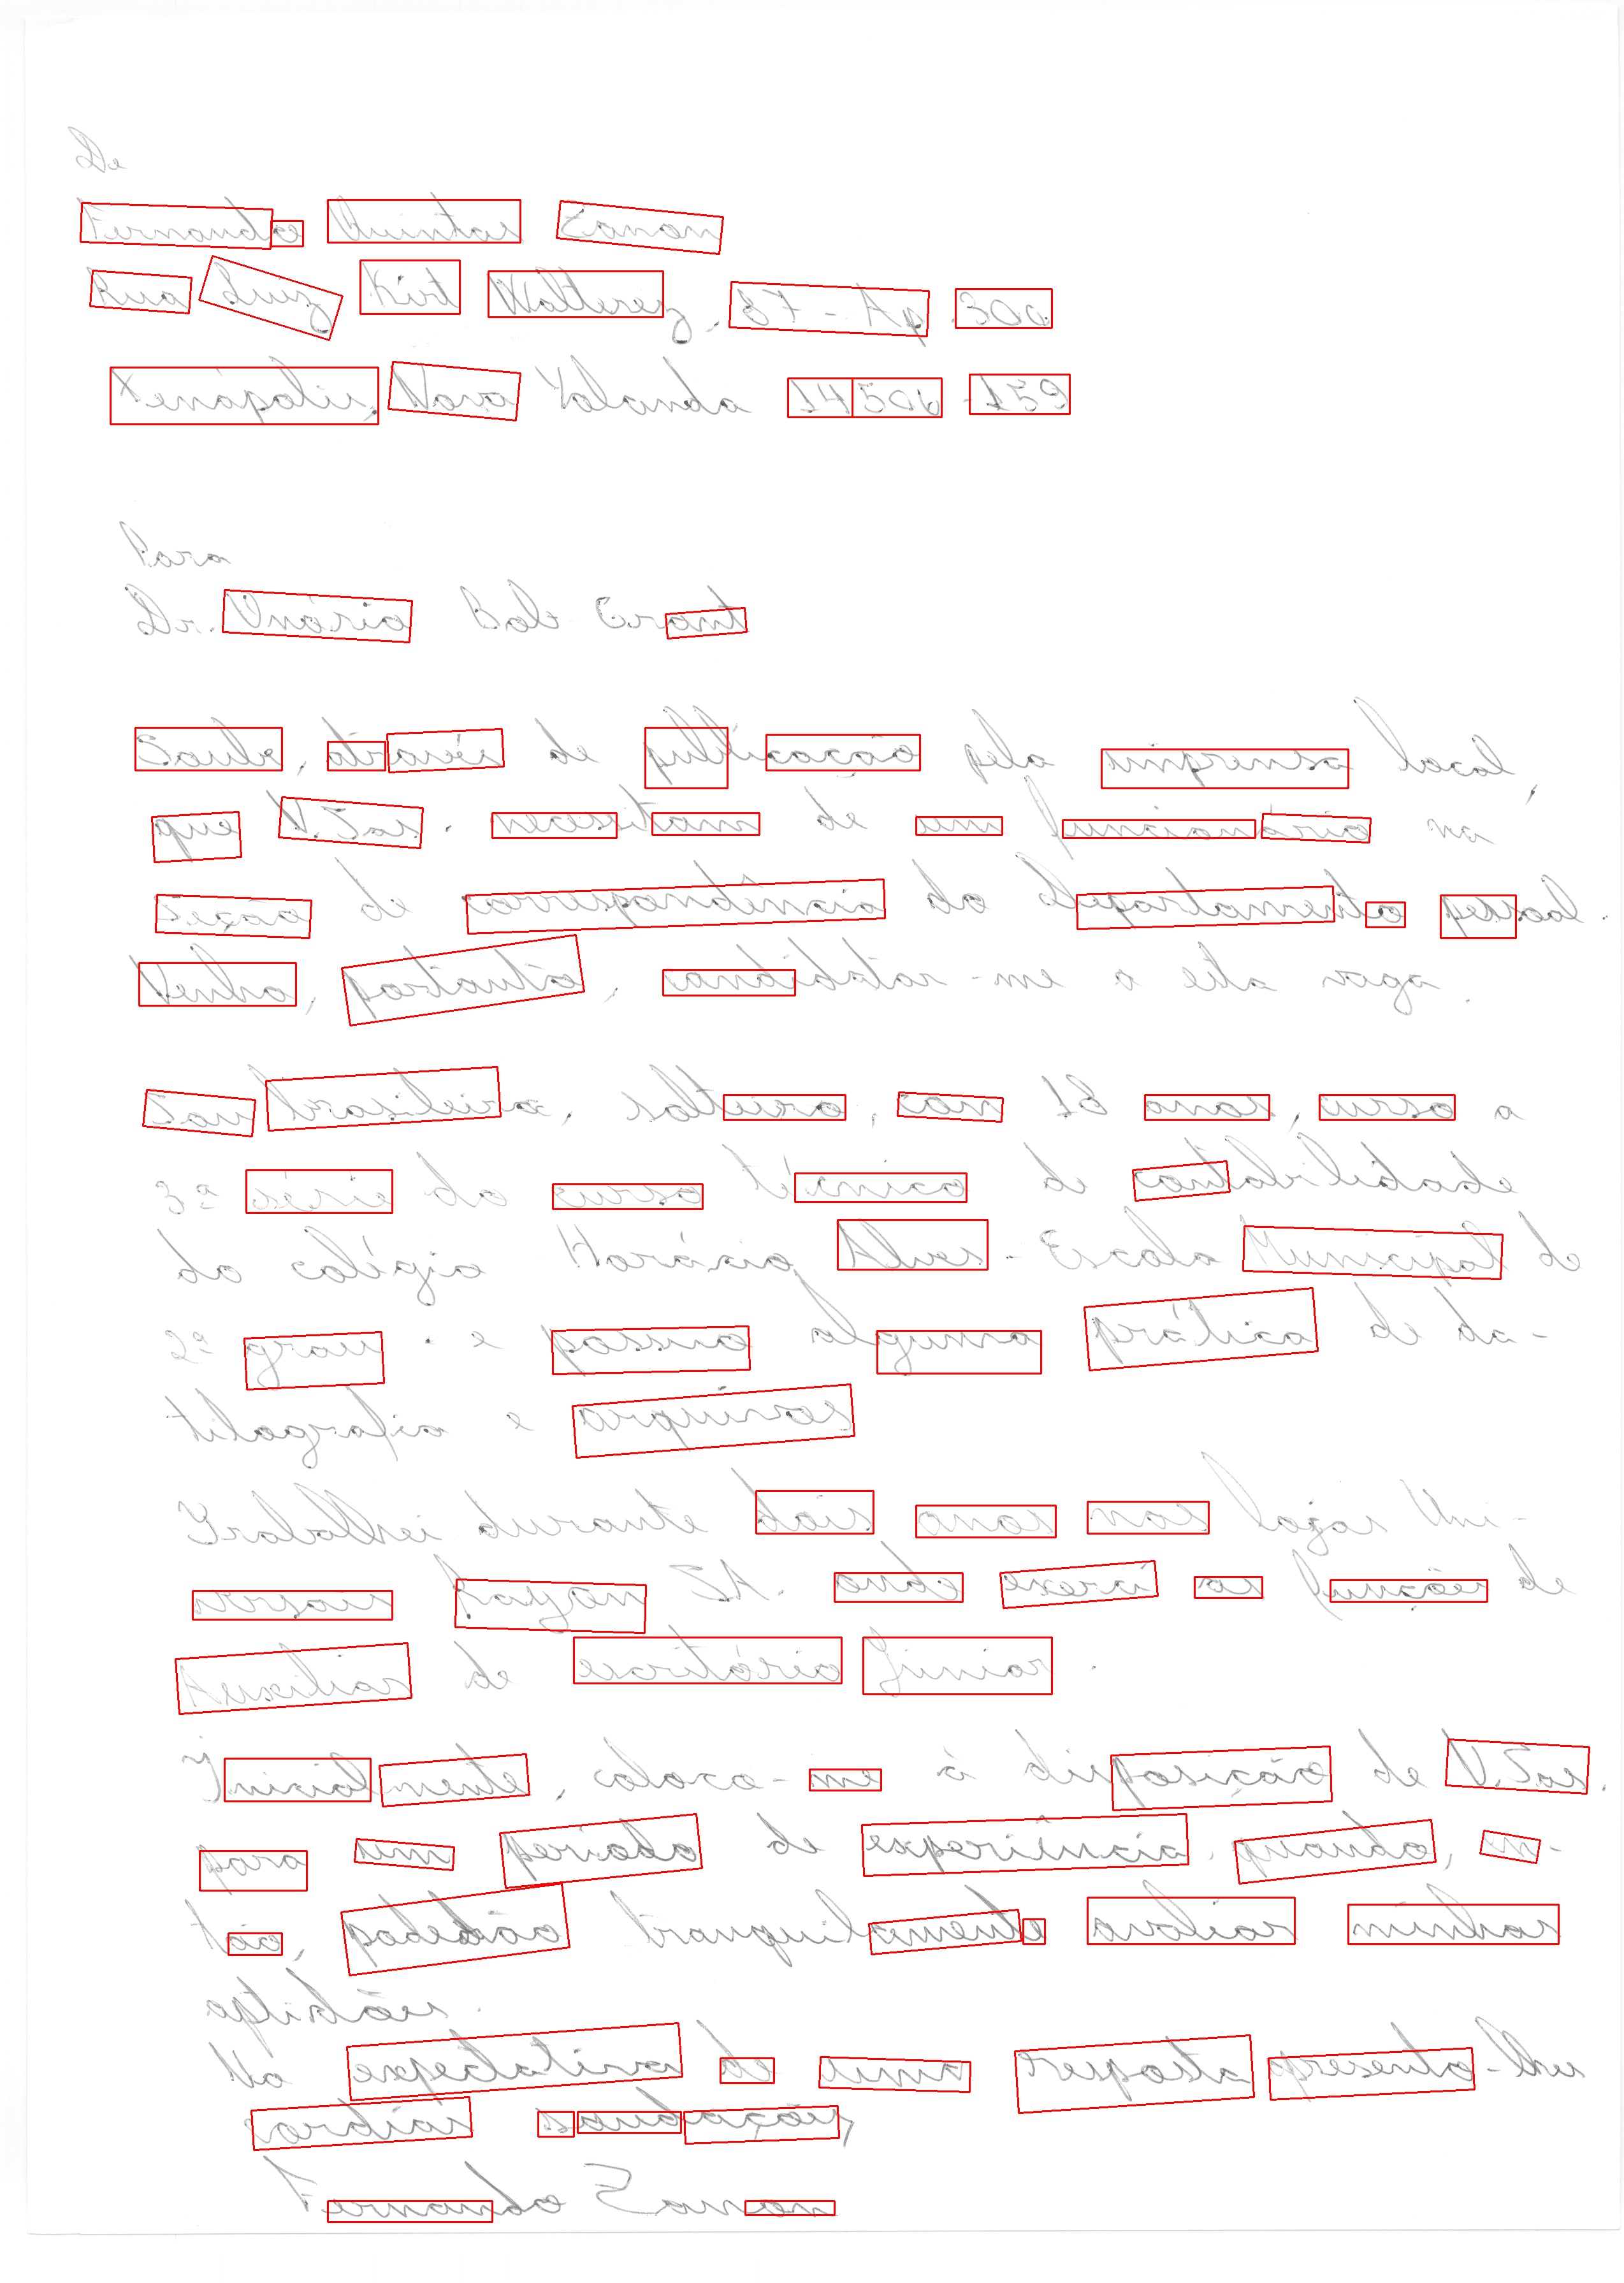 De
Fernando Quintas Sanon
Rua Luiz Kirt Walterez, 87 - Ap 300
Xenápolis, Nova Yolanda 14500-159
Para
Dr. Onório Bole Grant
Soube, através de publicação pela imprensa local,
que V.Sas. necessitam de um funcionário na
seção de correspondência do departamento pessoal.
Venho, portanto, candidatar-me a esta vaga.
Sou brasileira, solteiro, com 18 anos, curso a
3ª série do curso técnico de contabilidade
do colégio Horácio Alves - Escola Municipal de
2º grau - e possuo alguma prática de da-
tilografia e arquivos
Trabalhei durante dois anos nas lojas Uni-
versais Fayon SA. onde exerci as funções de
Auxiliar de escritório Junior.
Inicialmente, coloco-me à disposição de V.Sas.
para um período de experiência, quando, en-
tão, poderão tranquilamente avaliar minhas
aptidões.
Na expectativa de uma resposta, apresento-lhes
cordiais saudações,
Fernando Sanon